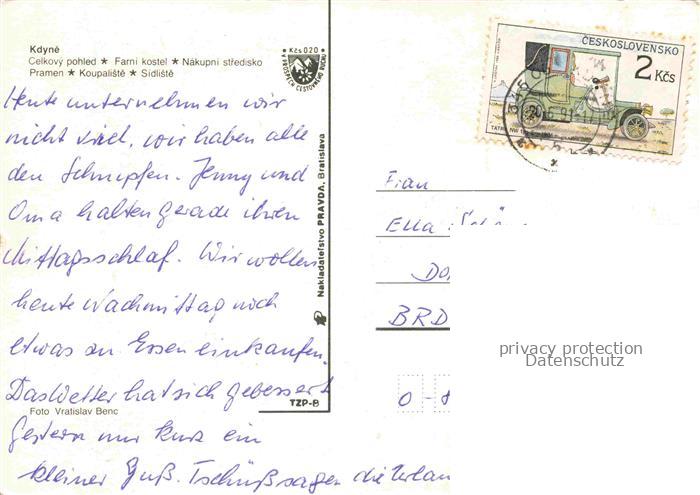 Kdyně
Celkový pohled ★ Farní kostel ★ Nákupní středisko
Pramen ★ Koupaliště ★ Sídliště
Kčs 0,20
VE PROSPĚCH CESTOVNÍHO RUCHU
ČESKOSLOVENSKO
2 Kčs
TATRA NW
Heute unternehmen wir
nicht viel, wir haben alle
den Schnupfen. Jenny und
Oma halten gerade ihren
Mittagsschlaf. Wir wollen
heute Nachmittag noch
etwas an Essen einkaufen.
Das Wetter hat sich gebessert
Gestern nur kurz ein
kleiner Guß. Tschüß sagen die Urlau
Foto Vratislav Benc
Nakladateľstvo PRAVDA, Bratislava
TZP-B
Frau
Ella
Do
BRD
O - 8
privacy protection
Datenschutz